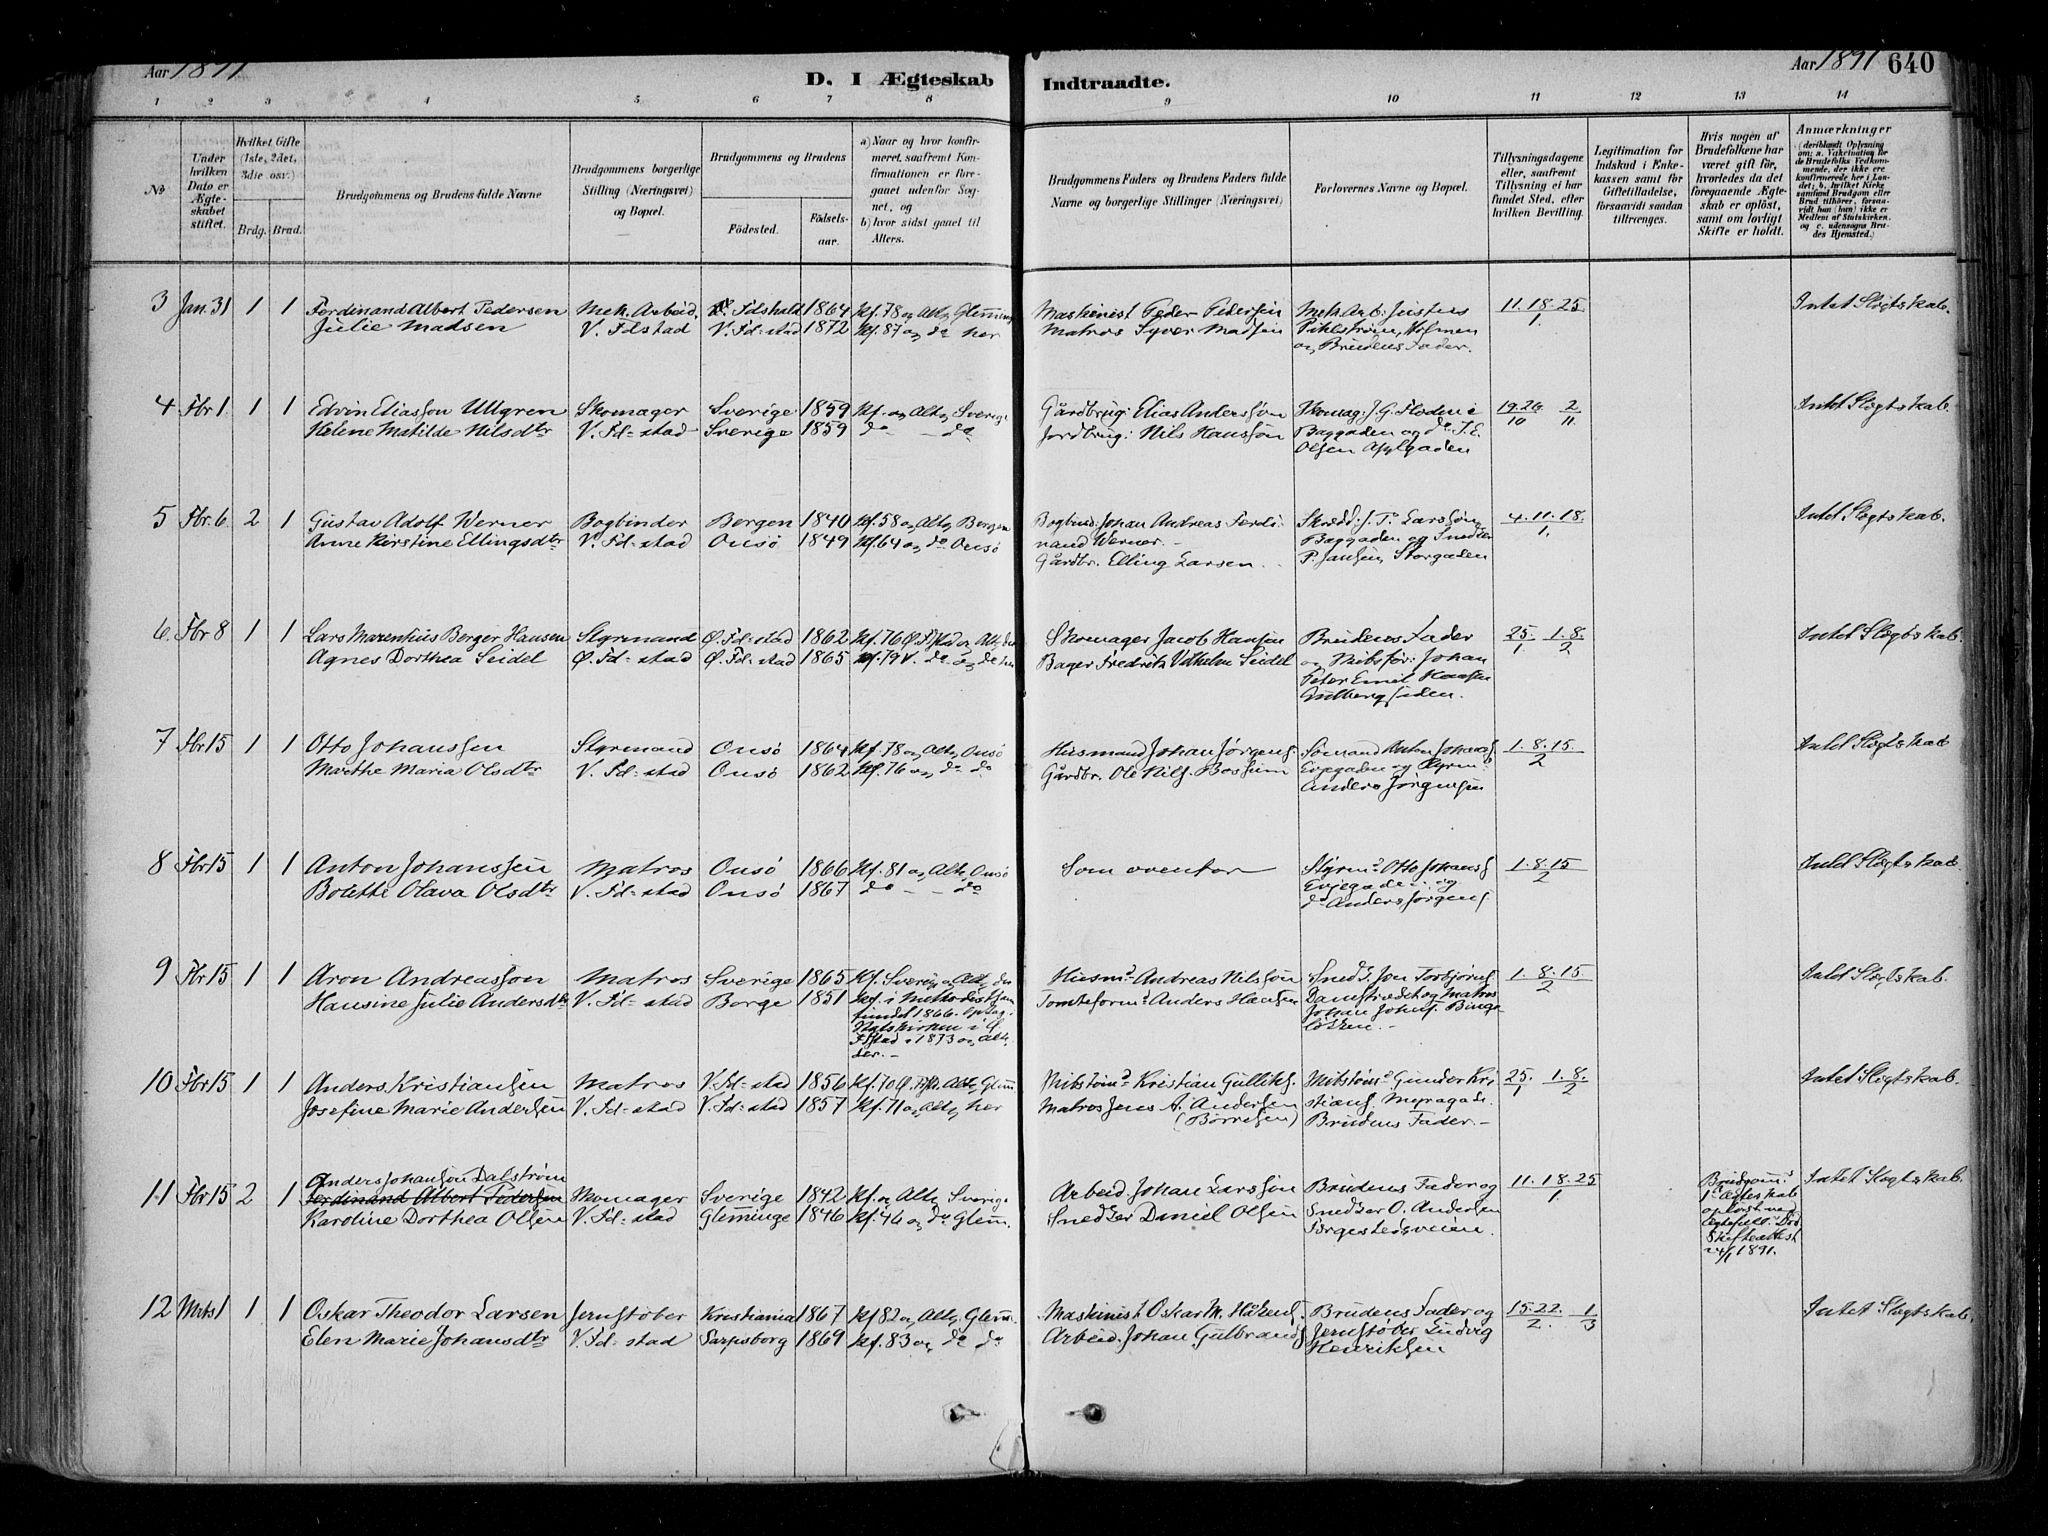 Aar 1891
D. I Ægteskab
Indtraadte.
Aar 1891 640
1 2 3 4 5 6 7 8 9 10 11 12 13 14
No
Under hvilken Dato er Ægteskabet stiftet.
Hvilket Gifte (1ste, 2det, 3die osv.)
Brdg. Brud.
Brudgommens og Brudens fulde Navne
Brudgommens borgerlige Stilling (Næringsvei) og Bopæl.
Brudgommens og Brudens
Födested.
Födselsaar.
a) Naar og hvor konfirmeret, saafremt Konfirmationen er foregaaet udenfor Sognet, og
b) hvor sidst gaaet til Alters.
Brudgommens Faders og Brudens Faders fulde Navne og borgerlige Stillinger (Næringsvei)
Forlovernes Navne og Bopæl.
Tillysningsdagene eller, saafremt Tillysning ei har fundet Sted, efter hvilken Bevilling.
Legitimation for Indskud i Enkekassen samt for Giftetilladelse, forsaavidt saadan tiltrænges.
Hvis nogen af Brudefolkene har været gift för, hvorledes da det foregaaende Ægteskab er oplöst, samt om lovligt Skifte er holdt.
Anmærkninger
(deriblandt Oplysning om: a. Vakcination for de Brudefolks Vedkommende, der ikke ere konfirmerede her i Landet; b. hvilket Kirkesamfund Brudgom eller Brud tilhörer, forsaavidt han (hun) ikke er Medlem af Statskirken, og c. udensogns Brudes Hjemsted.)
3 Jan. 31 1 1 Ferdinand Albert Pedersen Mek. Arbeid. Fdshald 1864 Kf. 78 og Alt. Glemmg Maskinist Peder Pedersen Mek. Arb. Justus 11. 18. 25 Intet Slægtskab.
Julie Madsen V. Fdstad V. Fd=stad 1872 Kf. 87 og do her Matros Syver Madsen Pihlstrøm, Holmen 1.
og Brudens Fader.
4 Fbr 1. 1 1 Edvin Eliasson Ullgren Skomager Sverige 1859 Kf. og Alt. Sverige Gårdbrug: Elias Andersson Skomag: J. G. Flodin i 19. 26 2 Intet Slægtskab.
Helene Matilde Nilsdtr V. Fd=stad Sverige 1859 do - do Jordbrug: Nils Hansson Baggaden og do J. E. 10 11
Olsen Applgaden
5 Fbr. 6 2 1 Gustav Adolf Werner Bogbinder Bergen 1840 Kf. 58 og Alt. Bergen Bogbind: Johan Andreas Ferdi- Skredd: J. T. Larssøn, 4. 11. 18. Intet Slægtskab.
Anne Kirstine Ellingsdtr V. Fd=stad Onsö 1849 Kf. 64 og do Onsö nand Werner.- Baggaden og Snedker 1.
Gårdbr. Elling Larsen. P. Jansen, Storgaden
6. Fbr 8 1 1 Lars Marentius Berger Hansen Styrmand Ø. Fd=stad 1862 Kf. 76 Ø. Fstad og Alt. der Skomager Jacob Hansen Brudens Fader 25. 1. 8. Intet Slægtskab.
Agnes Dorthea Seidel Ø. Fd=stad Ø. Fd=stad 1865 Kf. 79 V. do og do her Bager Fredrik Vilhelm Seidel og Skibsför: Johan 1 2
Peter Emil Hansen
Gulbergsiden.
7 Fbr 15 1 1 Otto Johanssen Styrmand Onsö 1864 Kf. 78 og Alt. Onsö Husmand Johan Jörgens. Sømand Anton Johans. 1. 8. 15. Intet Slægtskab
Marthe Maria Olsdtr V. Fd=stad Onsö 1862 Kf. 76 og do do Gårdbr. Ole Nils. Bossum Evjegaden og Styrmd 2
Anders Jörgensen
8 Fbr 15 1 1 Anton Johanssen Matros Onsö 1866 Kf. 81 og Alt. Onsö Som ovenfor Styrmd Otto Johans. 1. 8. 15 Intet Slægtskab
Bolette Olava Olsdtr V. Fd=stad Onsö 1867 do - - do Evjegade: og 2
do Anders Jörgens.
9 Fbr 15 1 1 Aron Andreasson Matros Sverige 1865 Kf. Sverig. og Alt. der Husmd Andreas Nilssøn Snedk. Jon Torbjörns. 1. 8. 15. Intet Slægtskab.
Hansine Julie Andersdtr V. Fd=stad Borge 1851 Kf. i Methodistsam- Tomteformd Anders Hansen Damstredet og Matros 2
fundet 1866. Optag. i Johan Johns. Binge-
Statskirken i Ø. løkken.-
Fstad i 1873 og Alt.
der.-
10 Fbr 15 1 1 Anders Kristiansen Matros V. Fd=stad 1856 Kf. 70 Ø. Fst. Alt. Glemm. Skibstømd Kristian Gulliks. Skibstømd Gunder Kri- 25. 1. 8. Intet Slægtskab.
Josefine Marie Andersen V. Fd=stad V. Fd=stad 1857 Kf. 71 og Alt. her Matros Jens A. Andersen stians. Myragade. 1 2
(Børresen) Brudens Fader.-
11 Fbr 15 2 1 Anders Johanson Dalstrøm
Ferdinand Albert Pedersen Skomager Sverige 1842 Kf. og Alt. Sverige Arbeid. Johan Larssön Brudens Fader og 11. 18. 25 Intet Slægtskab.
Karoline Dorthea Olsen V. Fd=stad Glemminge 1846 Kf. 46 og do Glem. Snedker Daniel Olsen Snedker O. Andersen 1
Torgestedsveien.
Brudgom.s
1ste Ægteskab
oplöst ved
Ægtefell. Död
Skifteattest
24/1 1891.
12 Mrts 1 1 1 Oskar Theodor Larsen Jernstøber Kristiania 1867 Kf 82 og Alt. Glem. Maskinist Oskar M. Håkens. Brudens Fader og 15. 22. 1 Intet Slægtskab.
Elen Marie Johansdtr V. Fd=stad Sarpsborg 1869 Kf. 83 og do do Arbeid. Johan Gulbrands. Jernstøber Ludvig 2. 3
Henriksen